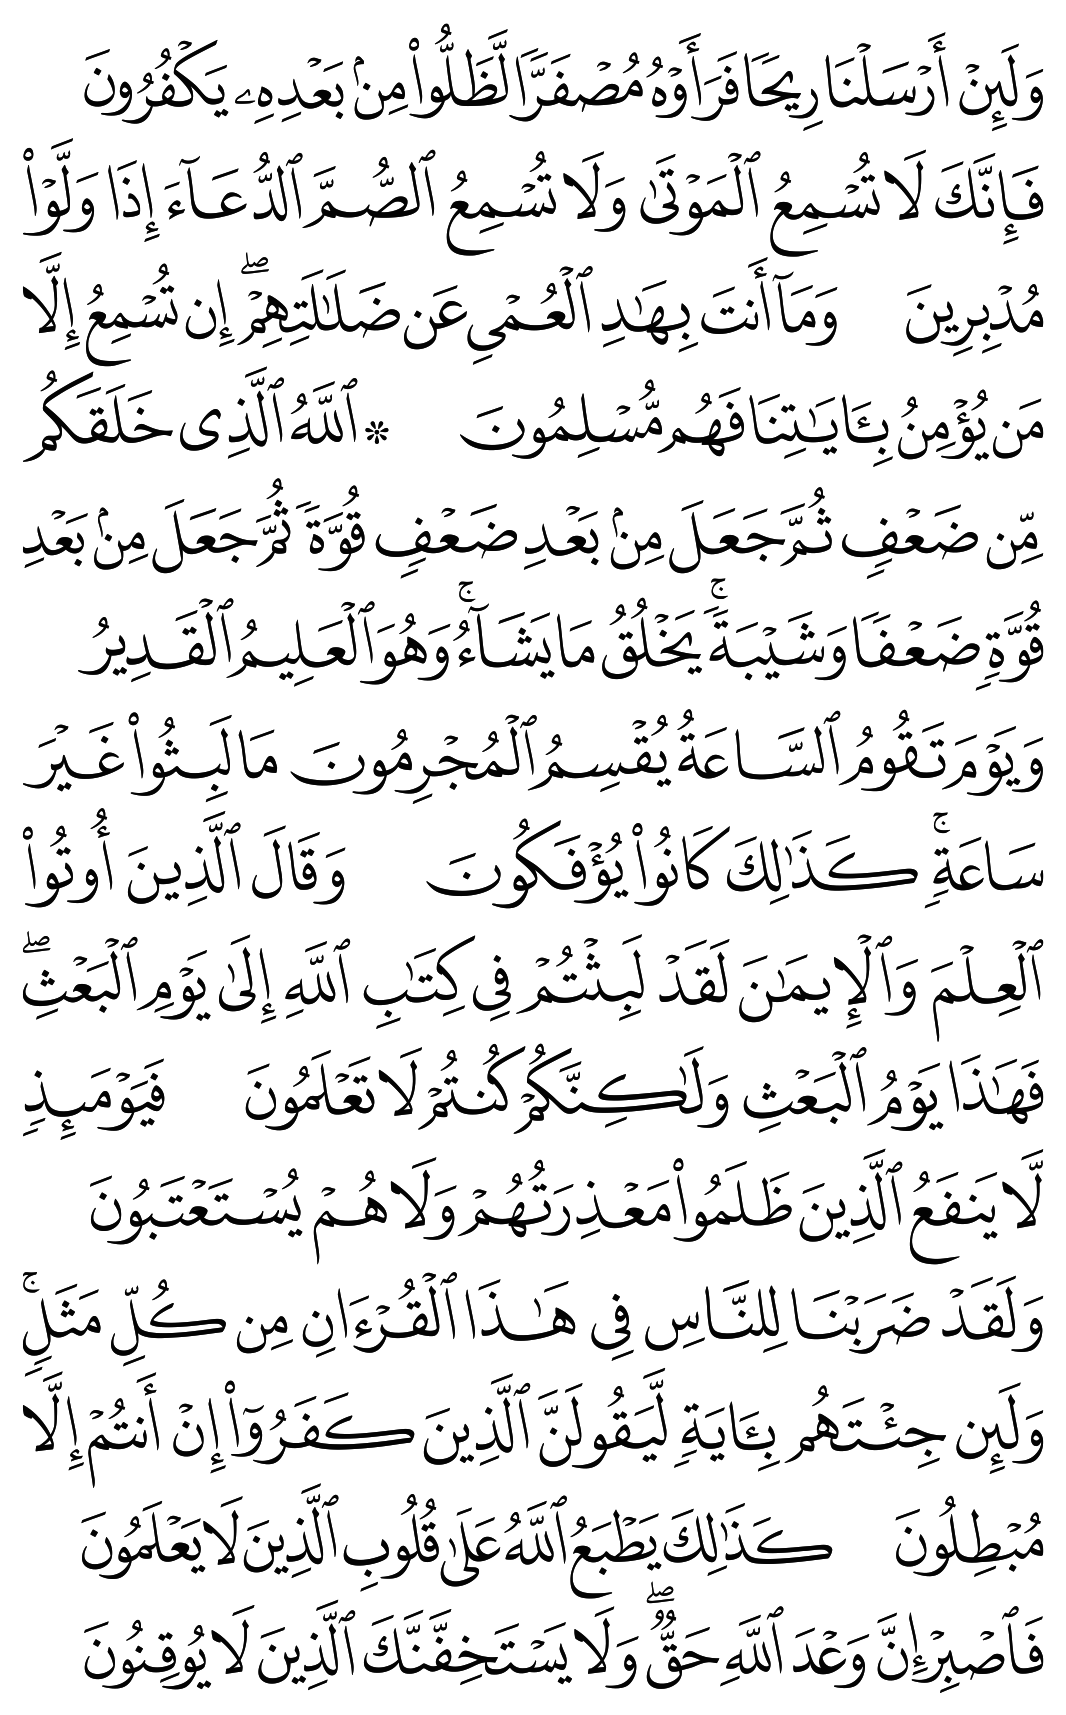 وَلَئِنۡ أَرۡسَلۡنَا رِيحٗا فَرَأَوۡهُ مُصۡفَرّٗا لَّظَلُّواْ مِنۢ بَعۡدِهِۦ يَكۡفُرُونَ
فَإِنَّكَ لَا تُسۡمِعُ ٱلۡمَوۡتَىٰ وَلَا تُسۡمِعُ ٱلصُّمَّ ٱلدُّعَآءَ إِذَا وَلَّوۡاْ
مُدۡبِرِينَ وَمَآ أَنتَ بِهَٰدِ ٱلۡعُمۡيِ عَن ضَلَٰلَتِهِمۡۖ إِن تُسۡمِعُ إِلَّا
مَن يُؤۡمِنُ بِـَٔايَٰتِنَا فَهُم مُّسۡلِمُونَ ۞ ٱللَّهُ ٱلَّذِي خَلَقَكُم
مِّن ضَعۡفٖ ثُمَّ جَعَلَ مِنۢ بَعۡدِ ضَعۡفٖ قُوَّةٗ ثُمَّ جَعَلَ مِنۢ بَعۡدِ
قُوَّةٖ ضَعۡفٗا وَشَيۡبَةٗۚ يَخۡلُقُ مَا يَشَآءُۚ وَهُوَ ٱلۡعَلِيمُ ٱلۡقَدِيرُ
وَيَوۡمَ تَقُومُ ٱلسَّاعَةُ يُقۡسِمُ ٱلۡمُجۡرِمُونَ مَا لَبِثُواْ غَيۡرَ
سَاعَةٖۚ كَذَٰلِكَ كَانُواْ يُؤۡفَكُونَ وَقَالَ ٱلَّذِينَ أُوتُواْ
ٱلۡعِلۡمَ وَٱلۡإِيمَٰنَ لَقَدۡ لَبِثۡتُمۡ فِي كِتَٰبِ ٱللَّهِ إِلَىٰ يَوۡمِ ٱلۡبَعۡثِۖ
فَهَٰذَا يَوۡمُ ٱلۡبَعۡثِ وَلَٰكِنَّكُمۡ كُنتُمۡ لَا تَعۡلَمُونَ فَيَوۡمَئِذٖ
لَّا يَنفَعُ ٱلَّذِينَ ظَلَمُواْ مَعۡذِرَتُهُمۡ وَلَا هُمۡ يُسۡتَعۡتَبُونَ
وَلَقَدۡ ضَرَبۡنَا لِلنَّاسِ فِي هَٰذَا ٱلۡقُرۡءَانِ مِن كُلِّ مَثَلٖۚ
وَلَئِن جِئۡتَهُم بِـَٔايَةٖ لَّيَقُولَنَّ ٱلَّذِينَ كَفَرُوٓاْ إِنۡ أَنتُمۡ إِلَّا
مُبۡطِلُونَ كَذَٰلِكَ يَطۡبَعُ ٱللَّهُ عَلَىٰ قُلُوبِ ٱلَّذِينَ لَا يَعۡلَمُونَ
فَٱصۡبِرۡ إِنَّ وَعۡدَ ٱللَّهِ حَقّٞۖ وَلَا يَسۡتَخِفَّنَّكَ ٱلَّذِينَ لَا يُوقِنُونَ